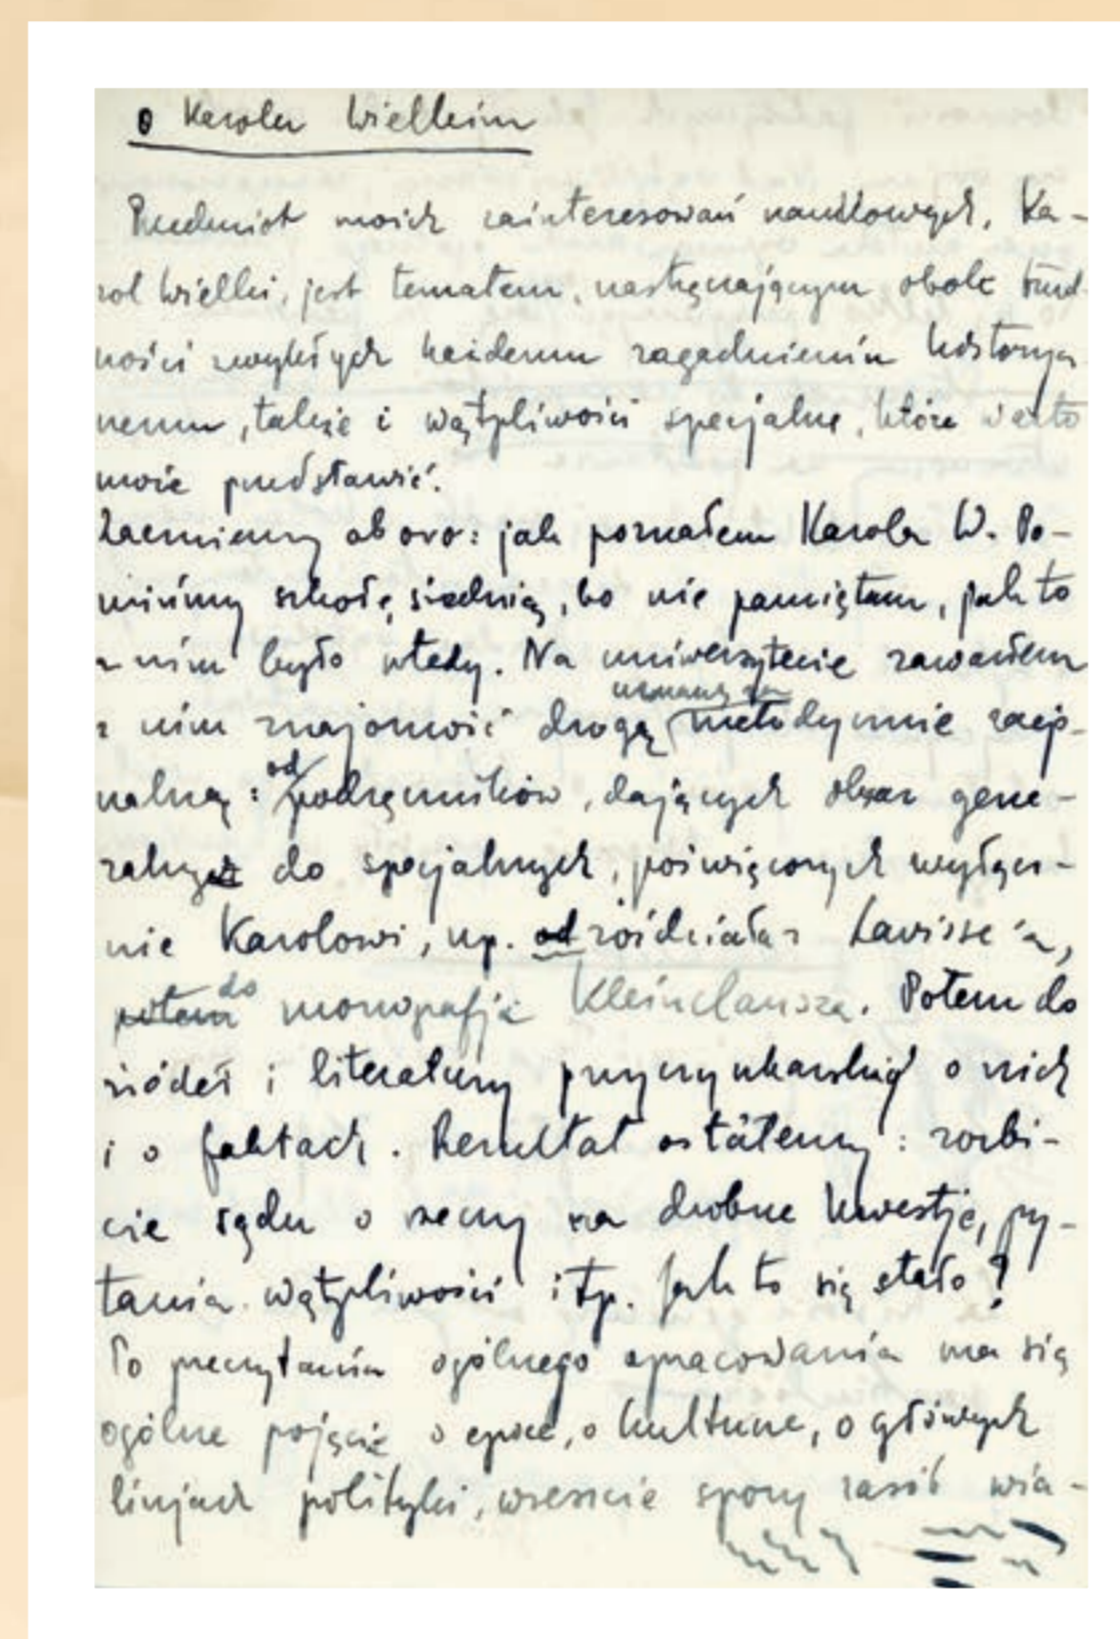 o Karolu Wielkim
Przedmiot moich zainteresowań naukowych, Ka-
rol Wielki, jest tematem, nastręczającym obok trud-
ności zwykłych każdemu zagadnieniu historycz-
nemu, także i wątpliwości specjalne, które warto
może przedstawić.
Zacznijmy ab ovo: jak poznałem Karola W. Po-
mińmy szkołę średnią, bo nie pamiętam, jak to
z nim było wtedy. Na uniwersytecie zawarłem
uznaną za
z nim znajomość drogą metodycznie racjo-
nalną: od podręczników, dających obraz gene-
ralny do specjalnych, poświęconych wyłącz-
nie Karolowi, np. od rozdziału Lavisse'a,
potem do monografji Kleinclausza. Potem do
źródeł i literatury przyczynkarskiej o nich
i o faktach. Rezultat ostateczny: rozbi-
cie sądu o rzeczy na drobne kwestje, py-
tania wątpliwości itp. Jak to się stało?
Po przeczytaniu ogólnego opracowania ma się
ogólne pojęcie o epoce, o kulturze, o głównych
linjach polityki, wreszcie spory zasób wia-